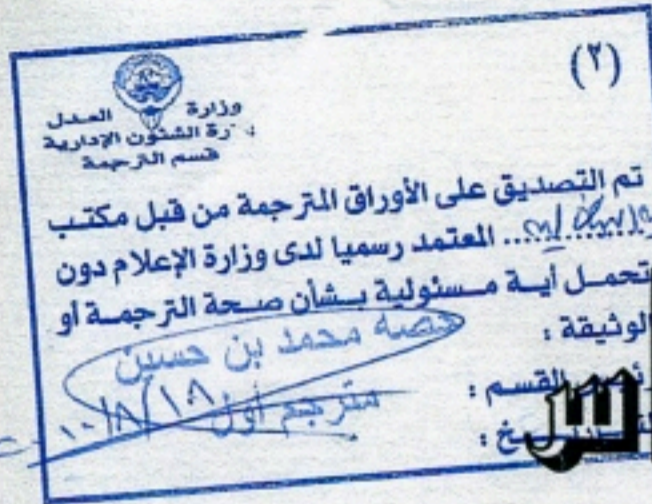 (٢)
وزارة العدل
رة الشئون الإدارية
قسم الترجمة
تم التصديق على الأوراق المترجمة من قبل مكتب
المعتمد رسميا لدى وزارة الإعلام دون
تحمل أية مسئولية بشأن صحة الترجمة أو
الوثيقة :
حصه محمد بن حسين
القسم :
مترجم أول